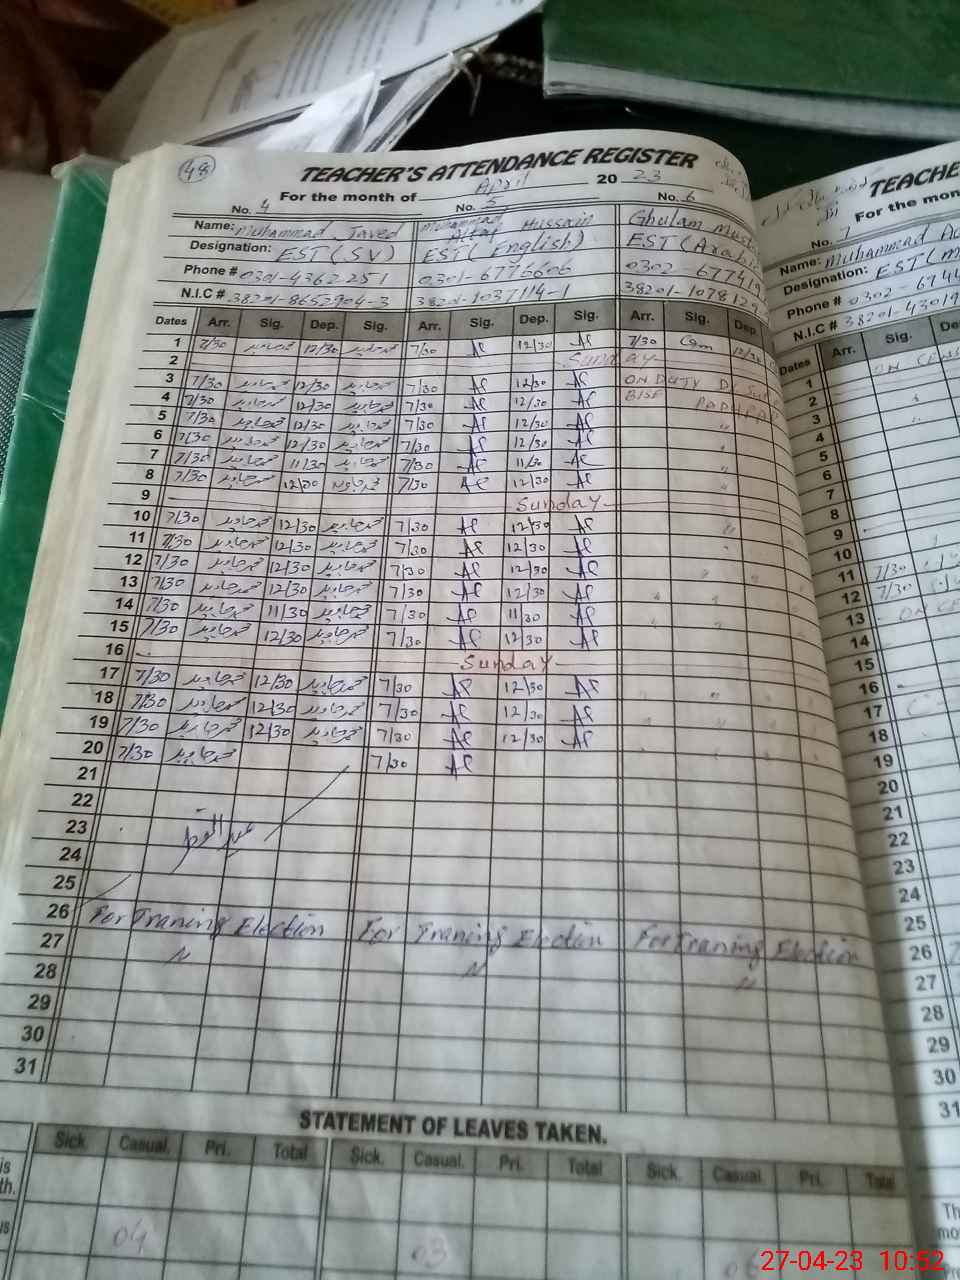 48
TEACHER'S ATTENDANCE REGISTER
For the month of April 2023
No. 4 No. 5 No. 6
Name: Muhammad Javed Muhammad Altaf Hussain Ghulam
Designation: EST (SV) EST (English) EST (
Phone # 0301-4362251 0301-6776606 0302-67741
N.I.C # 38201-8652904-3 38201-1037114-1 38201-10781
Dates Arr. Sig. Dep. Sig. Arr. Sig. Dep. Sig. Arr. Sig. Dep.
1 7/30 محمد جاوید 12/30 محمد جاوید 7/30 Af 12/30 Af 7/30 12/30
2 Sunday
3 7/30 محمد جاوید 12/30 محمد جاوید 7/30 Af 12/30 Af ON DUTY
4 7/30 محمد جاوید 12/30 محمد جاوید 7/30 Af 12/30 Af BISE
5 7/30 محمد جاوید 12/30 محمد جاوید 7/30 Af 12/30 Af "
6 7/30 محمد جاوید 12/30 محمد جاوید 7/30 Af 12/30 Af "
7 7/30 محمد جاوید 11/30 محمد جاوید 7/30 Af 11/30 Af "
8 7/30 محمد جاوید 12/30 محمد جاوید 7/30 Af 12/30 Af "
9 Sunday
10 7/30 محمد جاوید 12/30 محمد جاوید 7/30 Af 12/30 Af "
11 7/30 محمد جاوید 12/30 محمد جاوید 7/30 Af 12/30 Af "
12 7/30 محمد جاوید 12/30 محمد جاوید 7/30 Af 12/30 Af " "
13 7/30 محمد جاوید 12/30 محمد جاوید 7/30 Af 12/30 Af " "
14 7/30 محمد جاوید 11/30 محمد جاوید 7/30 Af 11/30 Af " "
15 7/30 محمد جاوید 12/30 محمد جاوید 7/30 Af 12/30 Af
16 Sunday
17 7/30 محمد جاوید 12/30 محمد جاوید 7/30 Af 12/30 Af " "
18 7/30 محمد جاوید 12/30 محمد جاوید 7/30 Af 12/30 Af " "
19 7/30 محمد جاوید 12/30 محمد جاوید 7/30 Af 12/30 Af " "
20 7/30 محمد جاوید 7/30 Af
21
22
23 عید الفطر
24
25
26 For Traning Election For Traning Election For Traning Election
27 " " "
28
29
30
31
STATEMENT OF LEAVES TAKEN.
Sick. Casual. Pri. Total Sick. Casual. Pri. Total Sick. Casual. Pri. Total
is
th.
us 04 03
TEACHE
For the mon
No. 7
Name: Muhammad
Designation: EST (
Phone # 0302-674
N.I.C # 38201-43019
Dates Arr. Sig. De
1
2
3
4
5
6
7
8
9
10
11 7/30
12 7/30
13 ON
14
15
16
17
18
19
20
21
22
23
24
25
26
27
28
29
30
31
Th
mo
27-04-23 10:52